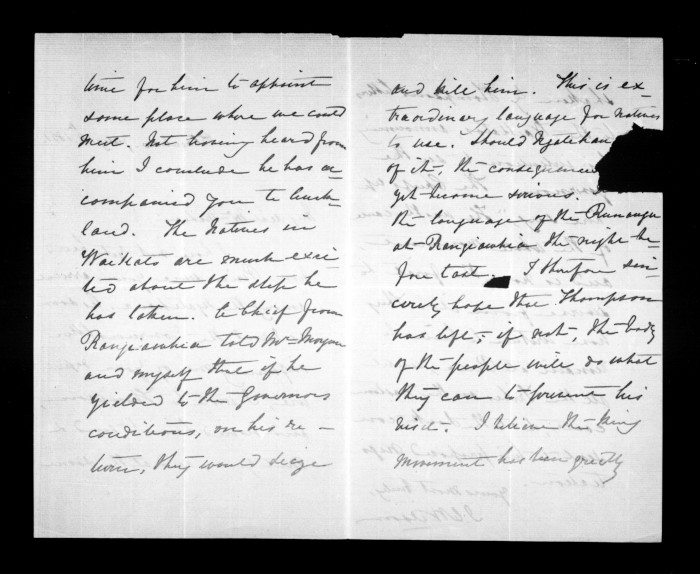 time for him to appoint
some place where we could
meet. Not having heard from
him I conclude he has ac-
companied you to Auck-
land. The Natives in
Waikato are much exci-
ted about the step he
has taken. A Chief from
Rangiawhia told Mr Morgan
and myself that if he
yielded to the Governors
conditions, on his re-
turn, they would seize
and kill him. This is ex-
traordinary language for natives
to use. Should Ngatihau
of it, the consequence
yet become serious.
the language of the Runanga
at Rangiawhia the night be-
fore last. I therefore sin-
cerely hope that Thompson
has left; if not, the body
of the people will do what
they can to prevent his
visit. I believe the King
movement has been greatly
Yours most truly,